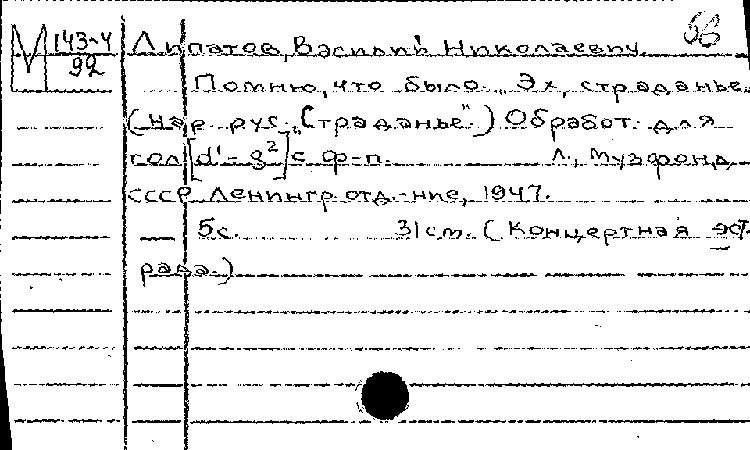 56
М 143-4
92
Липатов, Василий Николаевич.
Помню, что было. „Эх, страданье.
(нар. рус. „Страданье".) Обработ. для
гол [d'-g²] с ф-п. Л., Музфонд
СССР Ленингр отд-ние, 1947.
5с. 31см. (Концертная эст-
рада.)